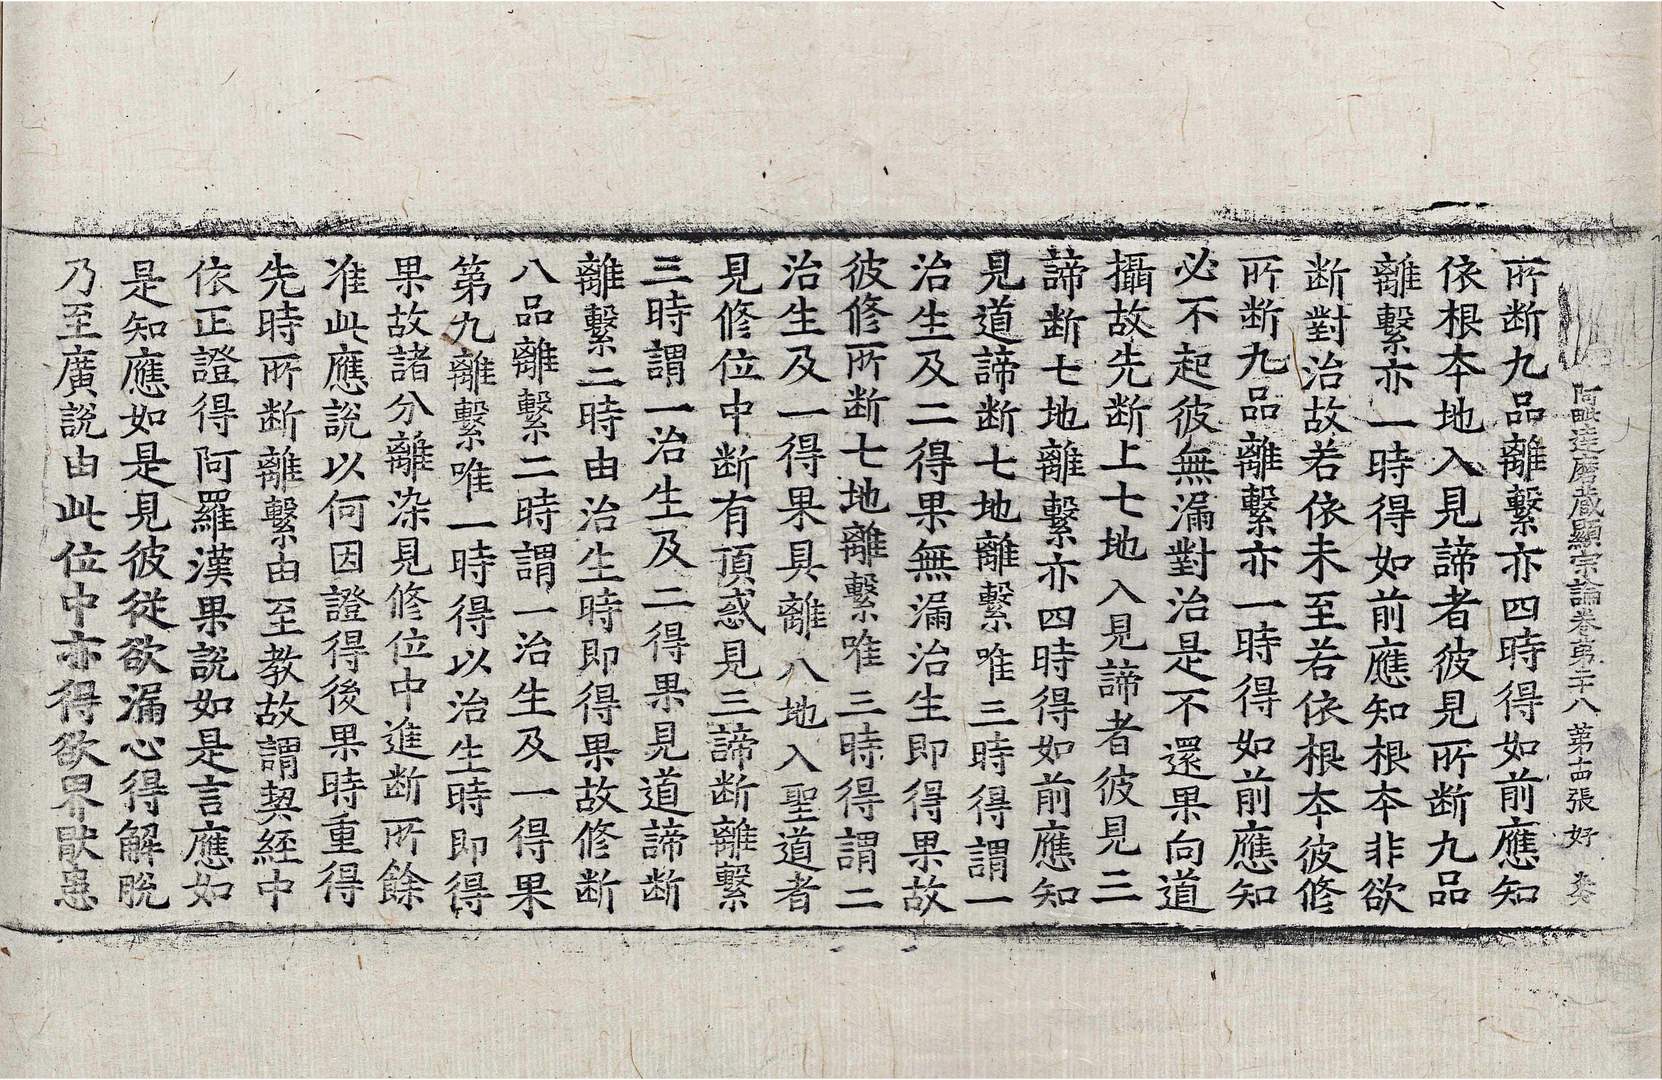 阿毗達磨藏顯宗論卷第二十八 第十四張 好 癸
所断九品離繫亦四時得如前應知
依根本地入見諦者彼見所断九品
離繫亦一時得如前應知根本非欲
断對治故若依未至若依根本彼修
所断九品離繫亦一時得如前應知
必不起彼無漏對治是不還果向道
攝故先断上七地入見諦者彼見三
諦断七地離繫亦四時得如前應知
見道諦断七地離繫唯三時得謂一
治生及二得果無漏治生即得果故
彼修所断七地離繫唯三時得謂二
治生及一得果具離八地入聖道者
見修位中断有頂惑見三諦断離繫
三時謂一治生及二得果見道諦断
離繫二時由治生時即得果故修断
八品離繫二時謂一治生及一得果
第九離繫唯一時得以治生時即得
果故諸分離染見修位中進断所餘
准此應說以何因證得後果時重得
先時所断離繫由至教故謂契經中
依正證得阿羅漢果說如是言應如
是知應如是見彼從欲漏心得解脫
乃至廣說由此位中亦得欲界猒患